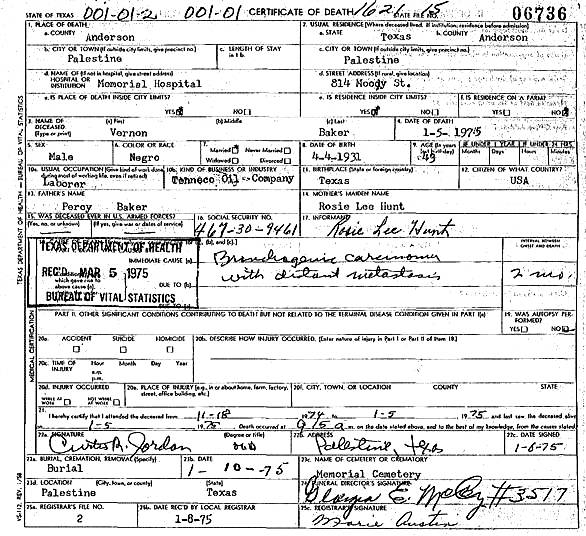 STATE OF TEXAS 001-01-2 001-01 CERTIFICATE OF DEATH 1621 15 STATE FILE NO. 06736
1. PLACE OF DEATH
a. COUNTY Anderson
2. USUAL RESIDENCE (Where deceased lived. If institution, residence before admission)
a. STATE Texas b. COUNTY Anderson
b. CITY OR TOWN (If outside city limits, give precinct no.) Palestine
c. LENGTH OF STAY in 1 b.
c. CITY OR TOWN (If outside city limits, give precinct no.) Palestine
d. NAME OF (If not in hospital, give street address) HOSPITAL OR INSTITUTION Memorial Hospital
d. STREET ADDRESS (If rural, give location) 814 Moody St.
e. IS PLACE OF DEATH INSIDE CITY LIMITS? YES NO
e. IS RESIDENCE INSIDE CITY LIMITS? YES NO
f. IS RESIDENCE ON A FARM? YES NO
3. NAME OF DECEASED (Type or print)
(a) First Vernon
(b) Middle
(c) Last Baker
4. DATE OF DEATH 1-5-1975
5. SEX Male
6. COLOR OR RACE Negro
7. Married Never Married Widowed Divorced
8. DATE OF BIRTH 4-4-1931
9. AGE (In years last birthday)
IF UNDER 1 YEAR Months Days
IF UNDER 24 HRS Hours Minutes
10a. USUAL OCCUPATION (Give kind of work done during most of working life, even if retired) Laborer
10b. KIND OF BUSINESS OR INDUSTRY Tenneco Oil Company
11. BIRTHPLACE (State or foreign country) Texas
12. CITIZEN OF WHAT COUNTRY? USA
13. FATHER'S NAME Percy Baker
14. MOTHER'S MAIDEN NAME Rosie Lee Hunt
15. WAS DECEASED EVER IN U.S. ARMED FORCES?
(Yes, no, or unknown) (If yes, give war or dates of service)
16. SOCIAL SECURITY NO. 467-30-9461
17. INFORMANT Rosie Lee Hunt
TEXAS DEPARTMENT OF HEALTH
REC'D MAR 5 1975
BUREAU OF VITAL STATISTICS
IMMEDIATE CAUSE (a) Bronchogenic carcinoma
with distant metastasis
DUE TO (b)
DUE TO (c)
INTERVAL BETWEEN ONSET AND DEATH 2 mo.
PART II. OTHER SIGNIFICANT CONDITIONS CONTRIBUTING TO DEATH BUT NOT RELATED TO THE TERMINAL DISEASE CONDITION GIVEN IN PART I(a)
19. WAS AUTOPSY PERFORMED? YES NO
20a. ACCIDENT SUICIDE HOMICIDE
20b. DESCRIBE HOW INJURY OCCURRED. (Enter nature of injury in Part I or Part II of Item 18.)
20c. TIME OF INJURY Hour Month Day Year
a.m.
p.m.
20d. INJURY OCCURRED WHILE AT WORK NOT WHILE AT WORK
20e. PLACE OF INJURY (e.g., in or about home, farm, factory, street, office building, etc.)
20f. CITY, TOWN, OR LOCATION COUNTY STATE
21. I hereby certify that I attended the deceased from 11-18 1974 to 1-5 1975 and last saw the deceased alive
on 1-5 1975 Death occurred at 915 a m. on the date stated above, and to the best of my knowledge, from the causes stated
22a. SIGNATURE Curtis R. Jordan (Degree or title)
22b. ADDRESS Palestine, Texas
22c. DATE SIGNED 1-6-75
23a. BURIAL, CREMATION, REMOVAL (Specify) Burial
23b. DATE 1-10-75
23c. NAME OF CEMETERY OR CREMATORY Memorial Cemetery
23d. LOCATION (City, town, or county) (State) Palestine Texas
24. FUNERAL DIRECTOR'S SIGNATURE Georgia E. McCoy #3517
25a. REGISTRAR'S FILE NO. 2
25b. DATE REC'D BY LOCAL REGISTRAR 1-8-75
25c. REGISTRAR'S SIGNATURE Marie Austin
TEXAS DEPARTMENT OF HEALTH — BUREAU OF VITAL STATISTICS
MEDICAL CERTIFICATION
VS-112, REV. 1/58